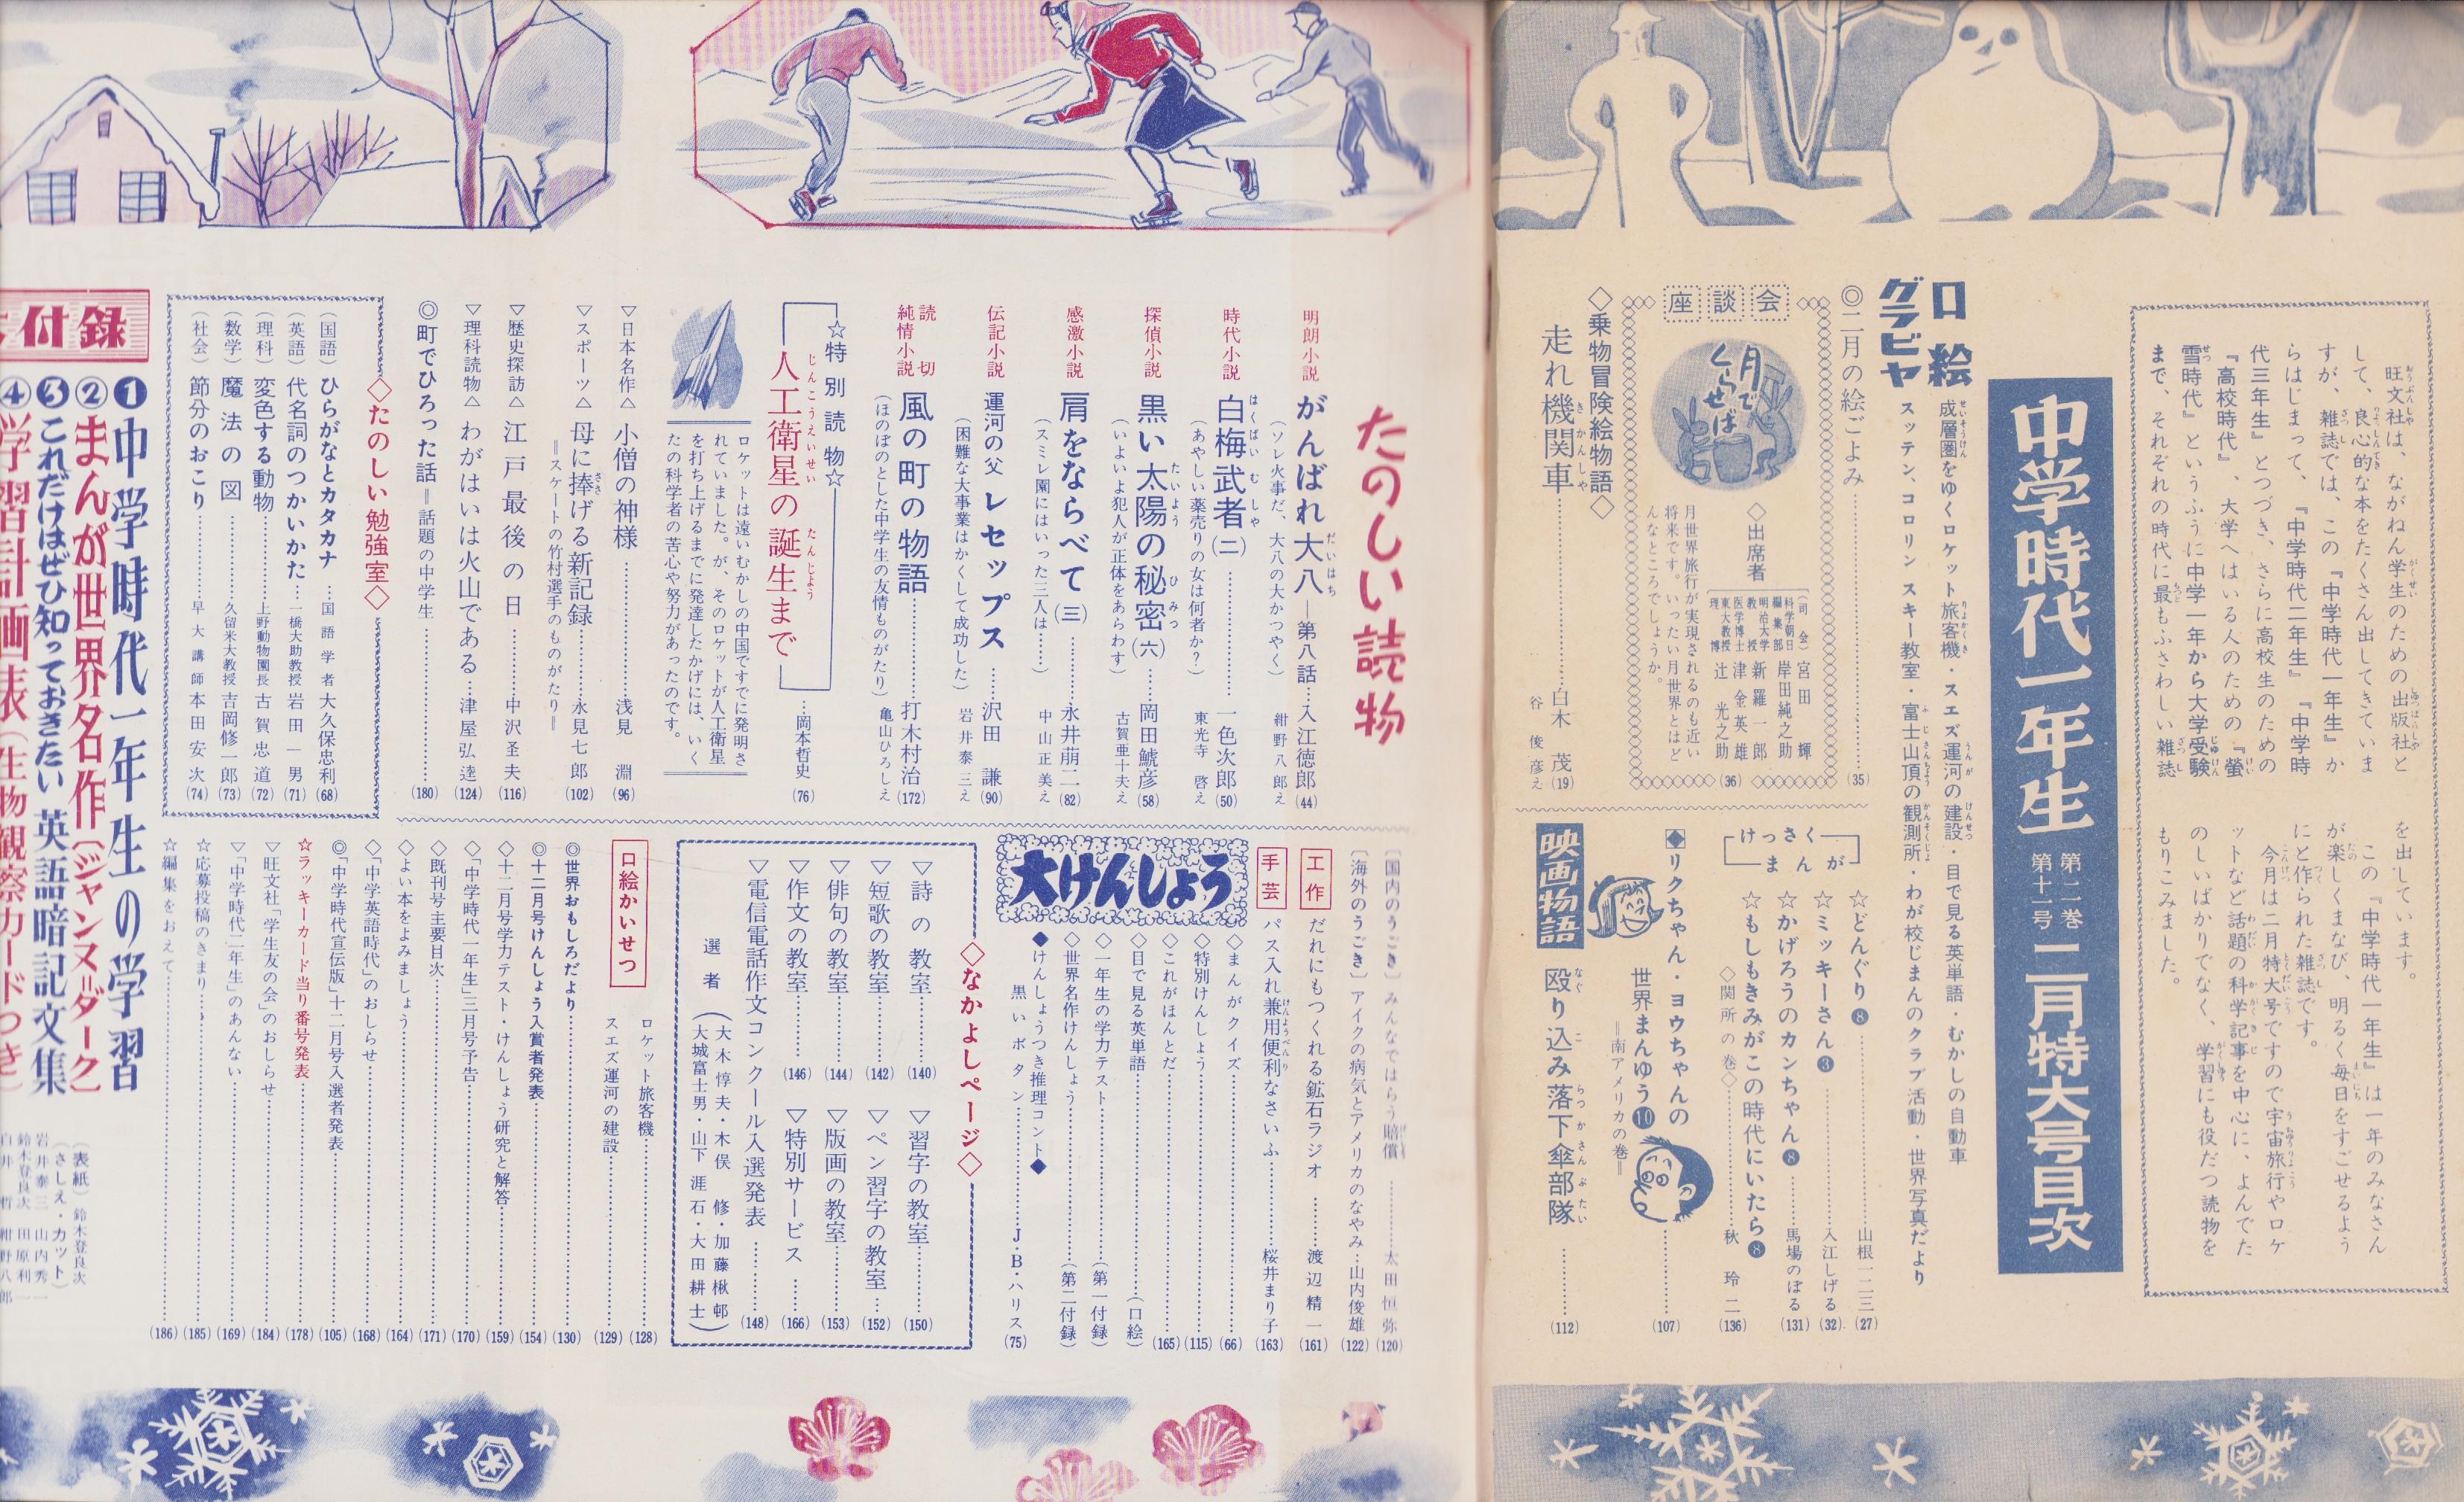 旺文社は、ながねん学生のための出版社と
して、良心的な本をたくさん出してきていま
すが、雑誌では、この『中学時代一年生』か
らはじまって、『中学時代二年生』『中学時
代三年生』とつづき、さらに高校生のための
『高校時代』、大学へはいる人のための『螢
雪時代』というふうに中学一年から大学受験
まで、それぞれの時代に最もふさわしい雑誌
を出しています。
この『中学時代一年生』は一年のみなさん
が楽しくまなび、明るく毎日をすごせるよう
にと作られた雑誌です。
今月は二月特大号ですので宇宙旅行やロケ
ットなど話題の科学記事を中心に、よんでた
のしいばかりでなく、学習にも役だつ読物を
もりこみました。
中学時代一年生 第二巻 第十一号 二月特大号目次
口絵
グラビヤ
成層圏をゆくロケット旅客機・スエズ運河の建設・目で見る英単語・むかしの自動車
スッテン、コロリン スキー教室・富士山頂の観測所・わが校じまんのクラブ活動・世界写真だより
◎二月の絵ごよみ (35)
座談会
月でくらせば
◇出席者
(司会) 宮田輝
科学朝日編集部 岸田純之助
明治大学教授 新羅一郎
医学博士 津金英雄
東大教授理博 辻光之助 (36)
月世界旅行が実現されるのも近い
将来です。いったい月世界とはど
んなところでしょうか。
◇乗物冒険絵物語◇
走れ機関車 白木茂 (19)
谷俊彦え
けっさくまんが
☆どんぐり❽ 山根一二三 (27)
☆ミッキーさん❸ 入江しげる (32)
☆かげろうのカンちゃん❽ 馬場のぼる (131)
☆もしもきみがこの時代にいたら❽ 秋玲二 (136)
◇関所の巻◇
◆リクちゃん・ヨウちゃんの
世界まんゆう❿ (107)
=南アメリカの巻=
映画物語 殴り込み落下傘部隊 (112)
たのしい読物
明朗小説 がんばれ大八―第八話 入江徳郎 (44)
(ソレ火事だ、大八の大かつやく) 紺野八郎え
時代小説 白梅武者(二) 一色次郎 (50)
(あやしい薬売りの女は何者か?) 東光寺啓え
探偵小説 黒い太陽の秘密(六) 岡田鯱彦 (58)
(いよいよ犯人が正体をあらわす) 古賀亜十夫え
感激小説 肩をならべて(三) 永井萠二 (82)
(スミレ園にはいった三人は……) 中山正美え
伝記小説 運河の父 レセップス 沢田謙 (90)
(困難な大事業はかくして成功した) 岩井泰三え
読切純情小説 風の町の物語 打木村治 (172)
(ほのぼのとした中学生の友情ものがたり) 亀山ひろしえ
☆特別読物☆
人工衛星の誕生まで 岡本哲史 (76)
ロケットは遠いむかしの中国ですでに発明さ
れていました。が、そのロケットが人工衛星
を打ち上げるまでに発達したかげには、いく
たの科学者の苦心や努力があったのです。
▽日本名作△ 小僧の神様 浅見淵 (96)
▽スポーツ△ 母に捧げる新記録 永見七郎 (102)
=スケートの竹村選手のものがたり=
▽歴史探訪△ 江戸最後の日 中沢圣夫 (116)
▽理科読物△ わがはいは火山である 津屋弘逵 (124)
◎町でひろった話=話題の中学生 (180)
◇たのしい勉強室◇
(国語) ひらがなとカタカナ 国語学者 大久保忠利 (68)
(英語) 代名詞のつかいかた 一橋大助教授 岩田一男 (71)
(理科) 変色する動物 上野動物園長 古賀忠道 (72)
(数学) 魔法の図 久留米大教授 吉岡修一郎 (73)
(社会) 節分のおこり 早大講師 本田安次 (74)
[国内のうごき] みんなではらう賠償 太田恒弥 (120)
[海外のうごき] アイクの病気とアメリカのなやみ 山内俊雄 (122)
工作 だれにもつくれる鉱石ラジオ 渡辺精一 (161)
手芸 パス入れ兼用便利なさいふ 桜井まり子 (163)
大けんしょう
◇まんがクイズ (66)
◇特別けんしょう (115)
◇これがほんとだ (165)
◇目で見る英単語 (口絵)
◇一年生の学力テスト (第一付録)
◇世界名作けんしょう (第二付録)
◆けんしょうつき推理コント◆
黒いボタン J・B・ハリス (75)
◇なかよしページ◇
▽詩の教室 (140) ▽習字の教室 (150)
▽短歌の教室 (142) ▽ペン習字の教室 (152)
▽俳句の教室 (144) ▽版画の教室 (153)
▽作文の教室 (146) ▽特別サービス (166)
▽電信電話作文コンクール入選発表 (148)
選者
(大木惇夫・木俣修・加藤楸邨
大城富士男・山下涯石・大田耕士)
口絵かいせつ
ロケット旅客機 (128)
スエズ運河の建設 (129)
◎世界おもしろだより (130)
◎十二月号けんしょう入賞者発表 (154)
◇十二月号学力テスト・けんしょう研究と解答 (159)
◇「中学時代一年生」三月号予告 (170)
◇既刊号主要目次 (171)
◇よい本をよみましょう (164)
◇「中学英語時代」のおしらせ (168)
◎「中学時代宣伝版」十二月号入選者発表 (105)
☆ラッキーカード当り番号発表 (178)
▽旺文社「学生友の会」のおしらせ (184)
▽「中学時代二年生」のあんない (169)
☆応募投稿のきまり (185)
☆編集をおえて (186)
付録
❶中学時代一年生の学習
②まんが世界名作(ジャンヌ=ダーク)
❸これだけはぜひ知っておきたい 英語暗記文集
④学習計画表(生物観察カードつき)
(表紙) 鈴木登良次
(さしえ・カット)
岩井泰三 山内秀一
鈴木登良次 田原利一
白井哲 紺野八郎